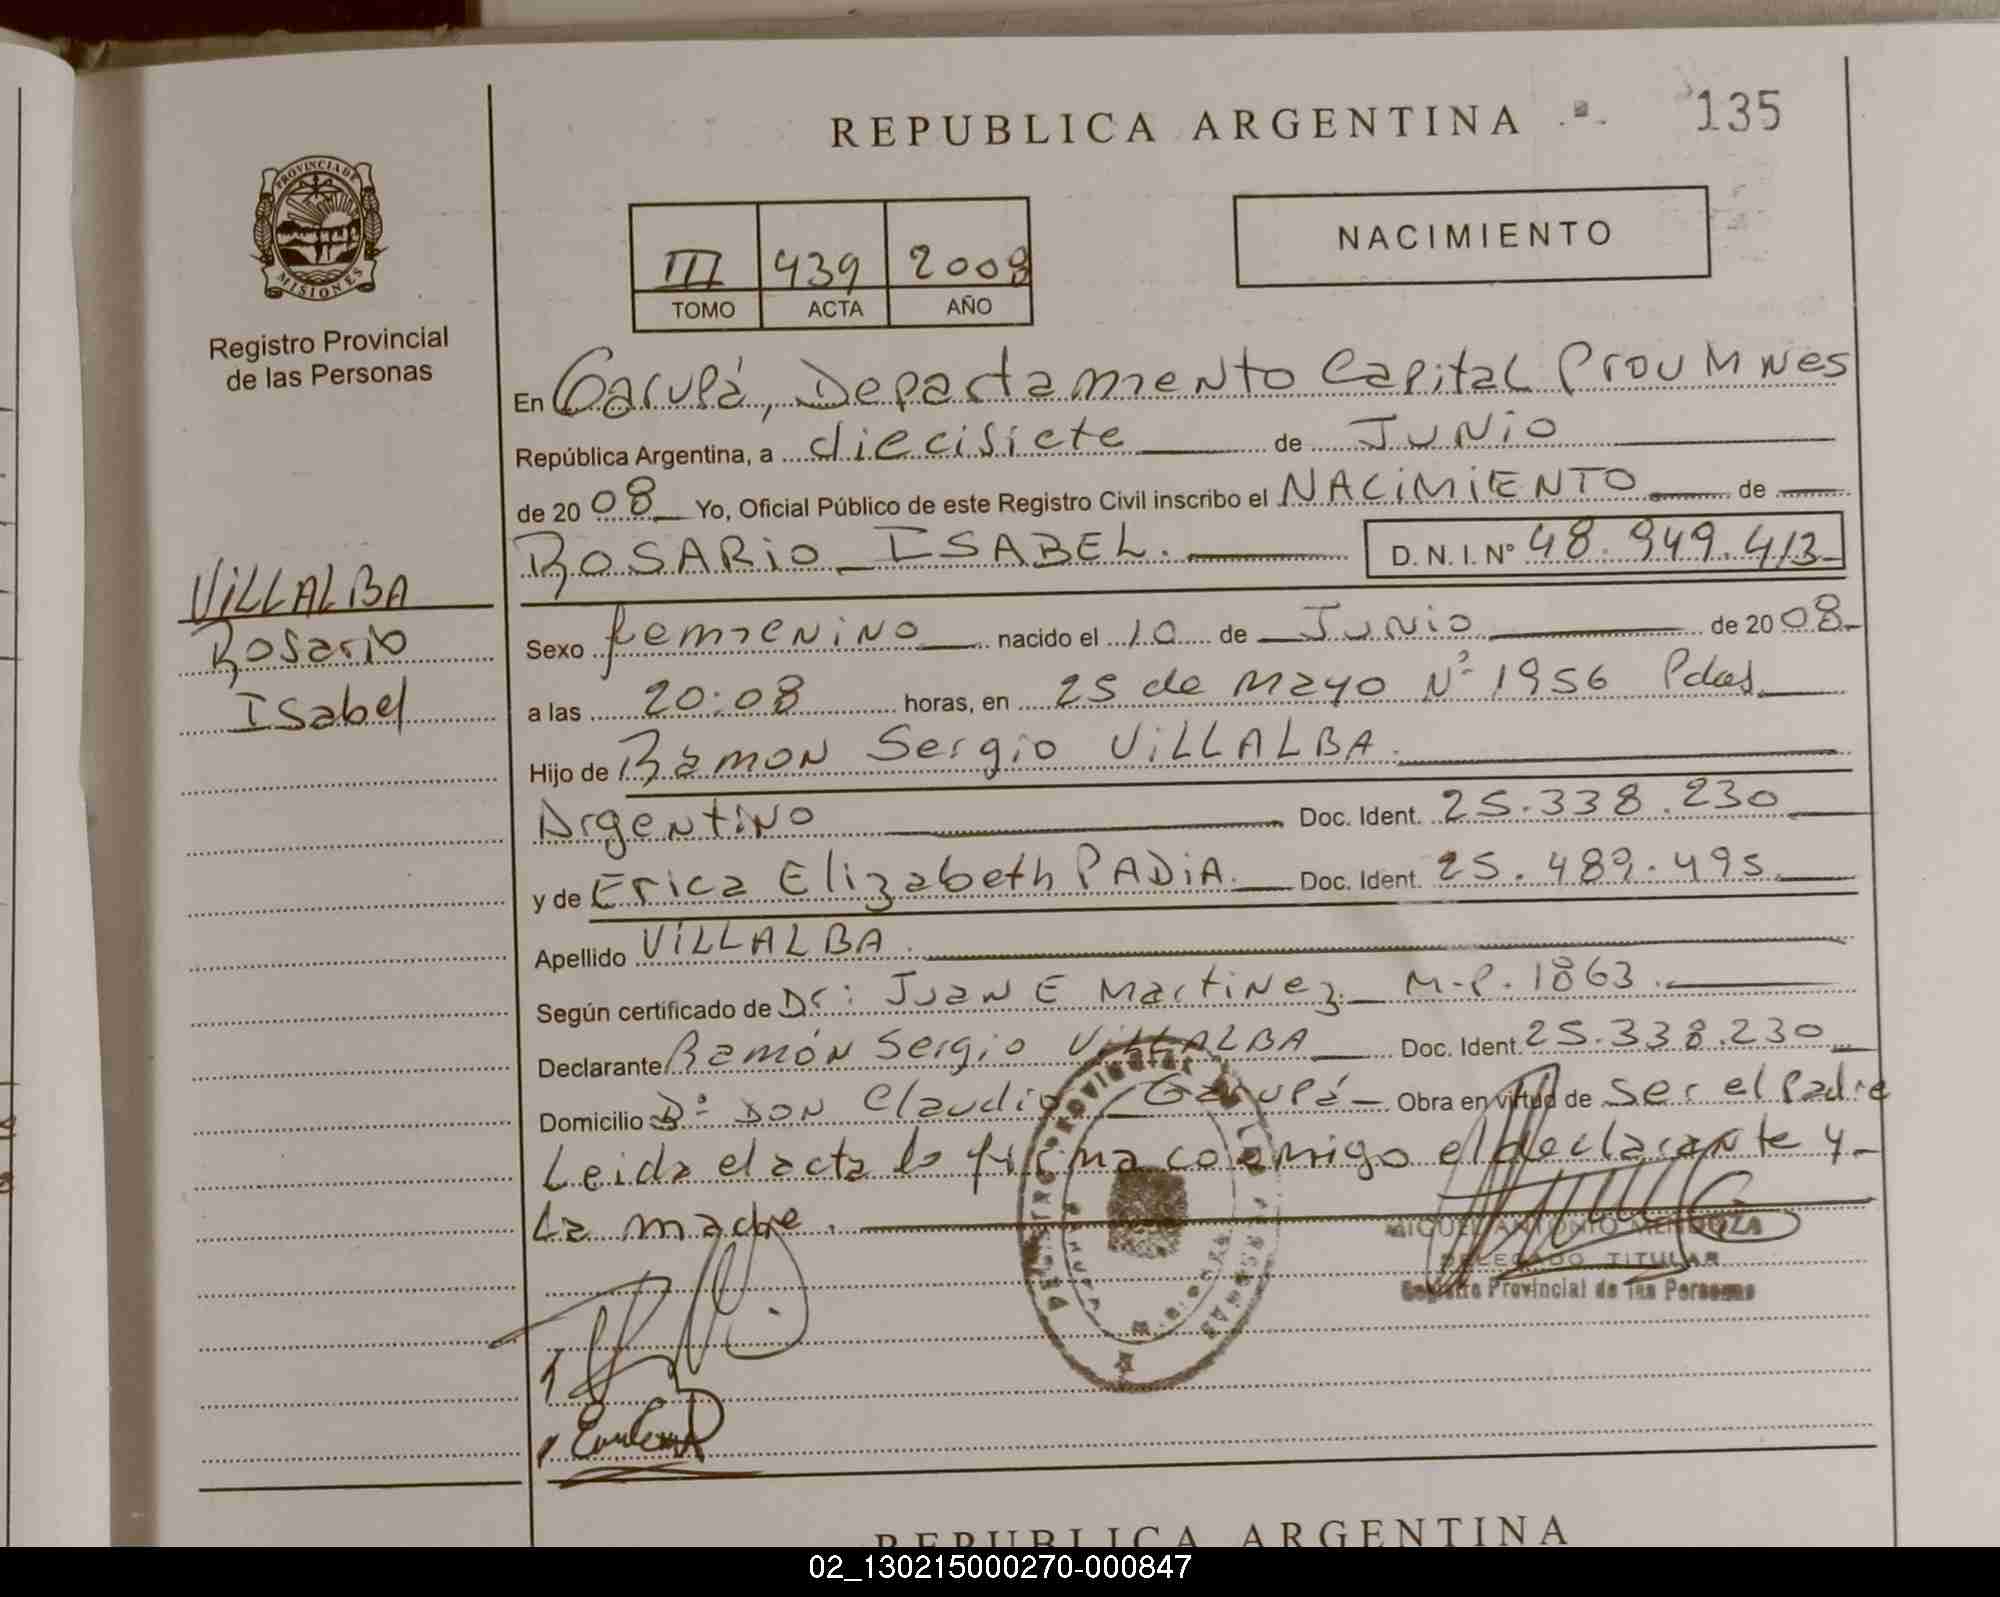 REPUBLICA ARGENTINA
135
PROVINCIA DE
MISIONES
Registro Provincial
de las Personas
III 439 2008
TOMO ACTA AÑO
NACIMIENTO
En Garupá, Departamento Capital Prov Mnes
República Argentina, a diecisiete de Junio
de 2008 Yo, Oficial Público de este Registro Civil inscribo el NACIMIENTO de
ROSARIO ISABEL. D.N.I. Nº 48.949.413
VILLALBA
Rosario
Isabel
Sexo femenino nacido el 10 de Junio de 2008
a las 20:08 horas, en 25 de Mayo Nº 1956 Pdas
Hijo de Ramon Sergio VILLALBA.
Argentino Doc. Ident. 25.338.230
y de Erica Elizabeth PADIA. Doc. Ident. 25.489.495
Apellido VILLALBA.
Según certificado de Dr: Juan E Martinez M.P. 1863.
Declarante Ramón Sergio VILLALBA Doc. Ident. 25.338.230
Domicilio Bº DON Claudio Garupá Obra en virtud de Ser el Padre
Leida el acta la firma conmigo el declarante y
La madre.
MIGUEL ANTONIO MENDOZA
DELEGADO TITULAR
Registro Provincial de las Personas
REPUBLICA ARGENTINA
02_130215000270-000847